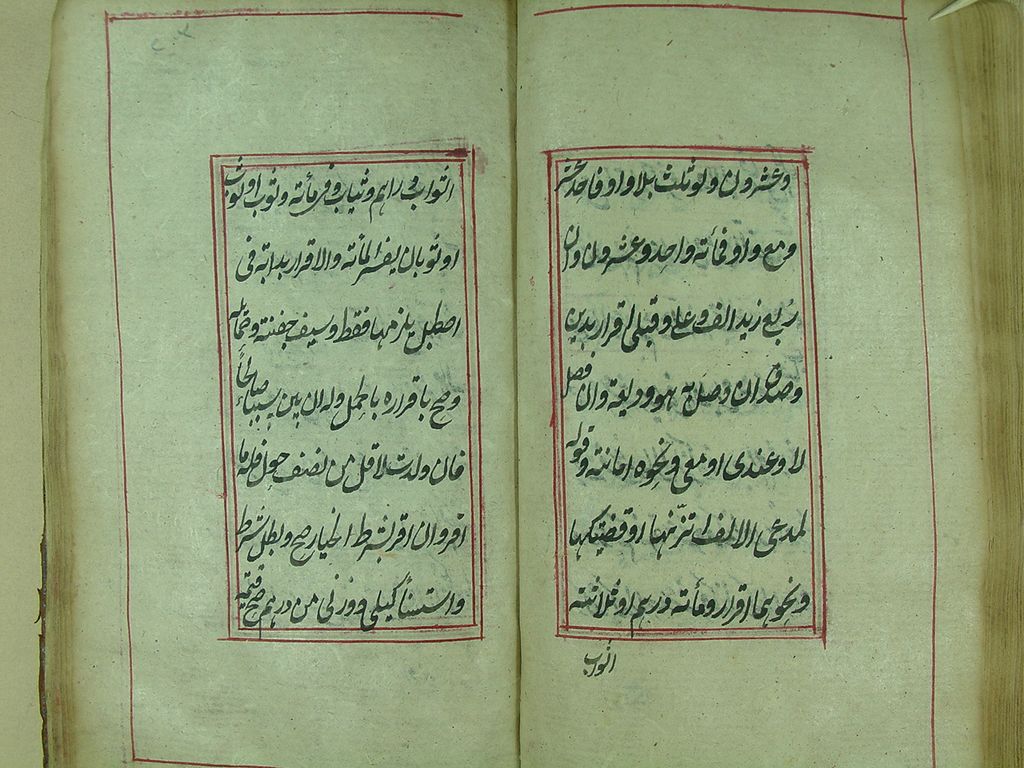 وعشرون ولو ثلث بلا واو فاحد عشر
ومع واو فمأته واحد وعشرون وان
ربع زيد الف وعلي وقبلي اقرار بدين
وصدق ان وصل به هو وديعة وان فصل
لا وعندي او معي ونحوه امانته وقوله
لمدعي الالف اتزنها او قضيتكها
ونحوهما اقرار ومأته ودرهم او ثلاثته
اثواب
اثواب دراهم وثياب وفي مأته وثوب او ثوب
او ثوبان يفسر المأته والاقرار بدابته في
اصطبل يلزمها فقط وسيف جفنته وحمايله
وصح باقراره بالحمل وله ان بين سببا صالحاً
فان ولدت لاقل من نصف حول فله ما
اقر وان اقر بشرط الخيار صح وبطل شرط
واستثنأ كيلي ووزني من درهم صح قيمته